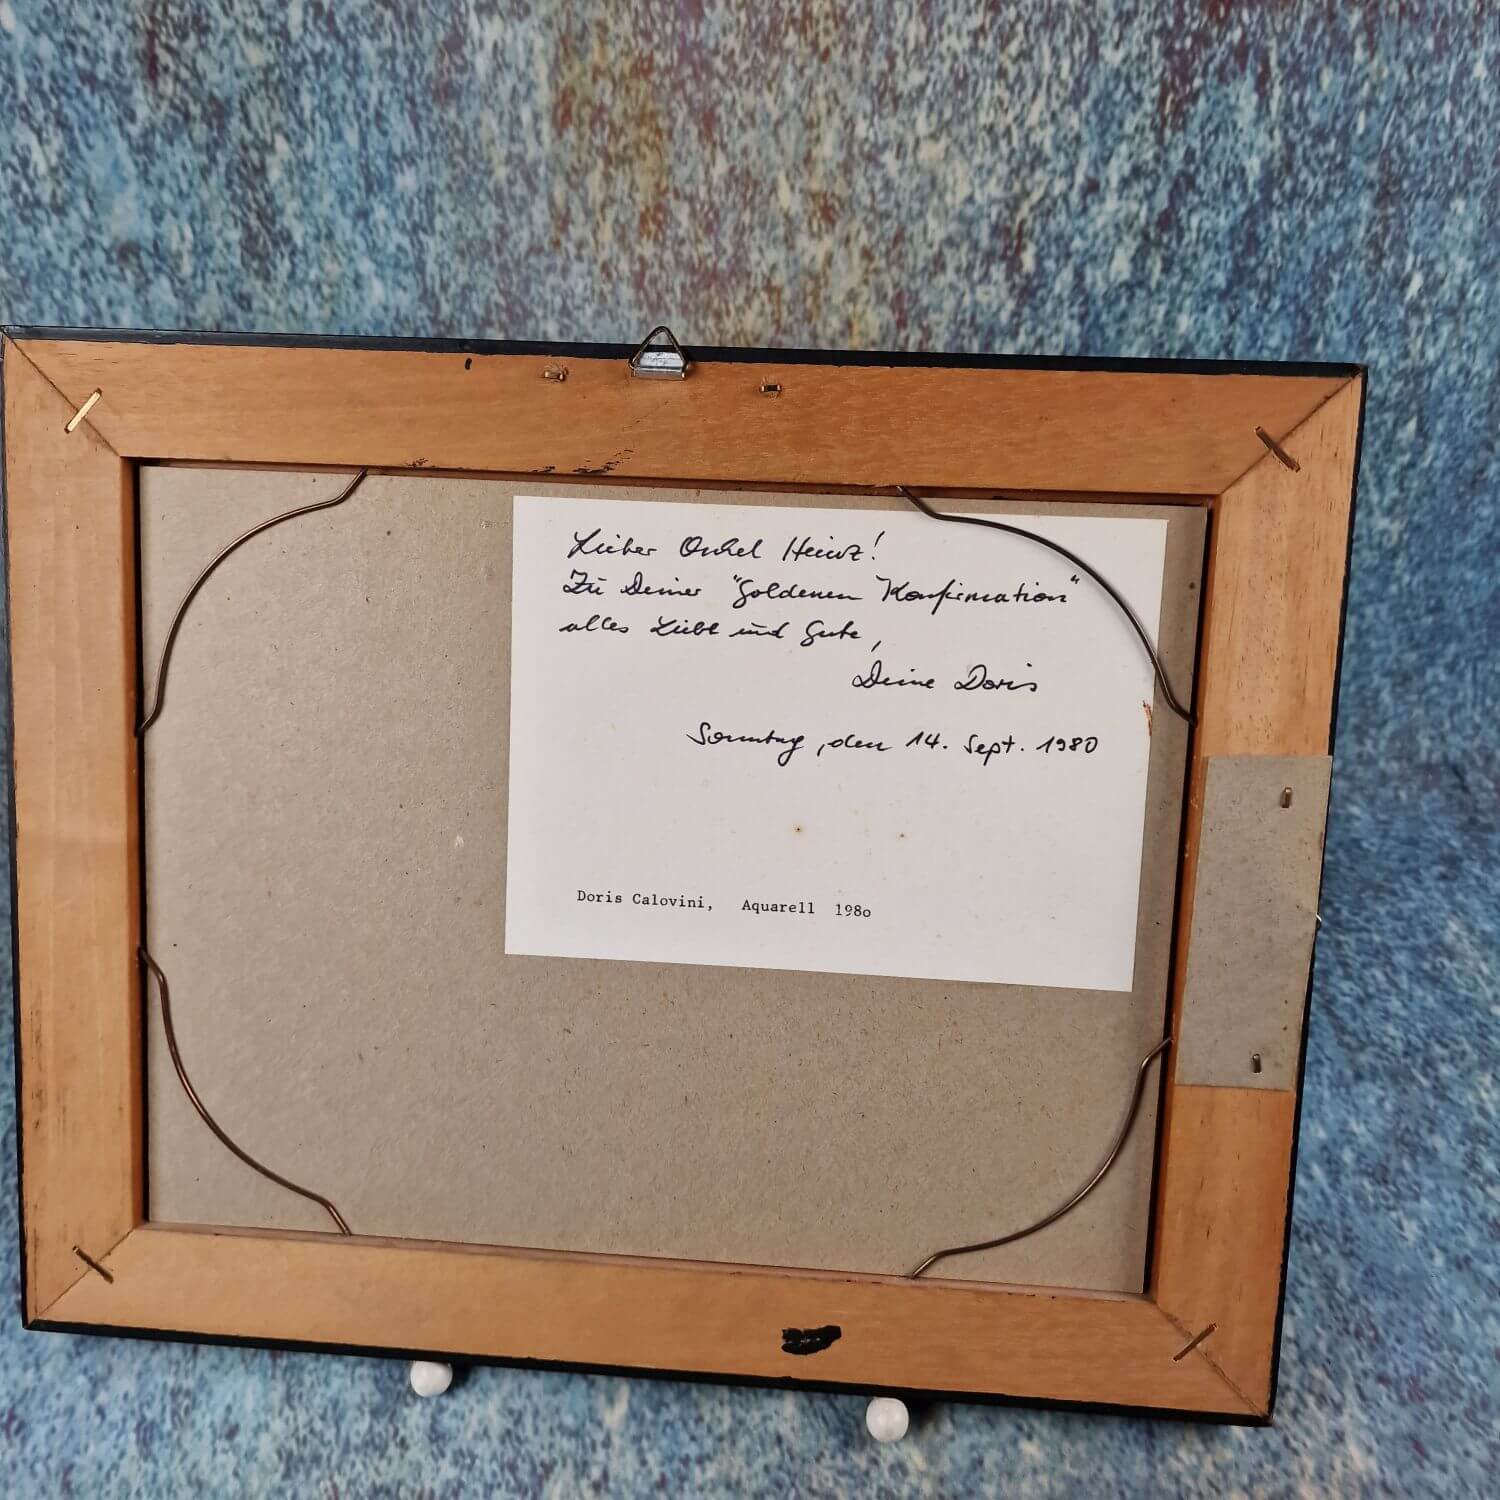 Lieber Onkel Heinz!
Zu Deiner "Goldenen Konfirmation"
alles Liebe und Gute,
Deine Doris
Sonntag, den 14. Sept. 1980
Doris Calovini, Aquarell 198o